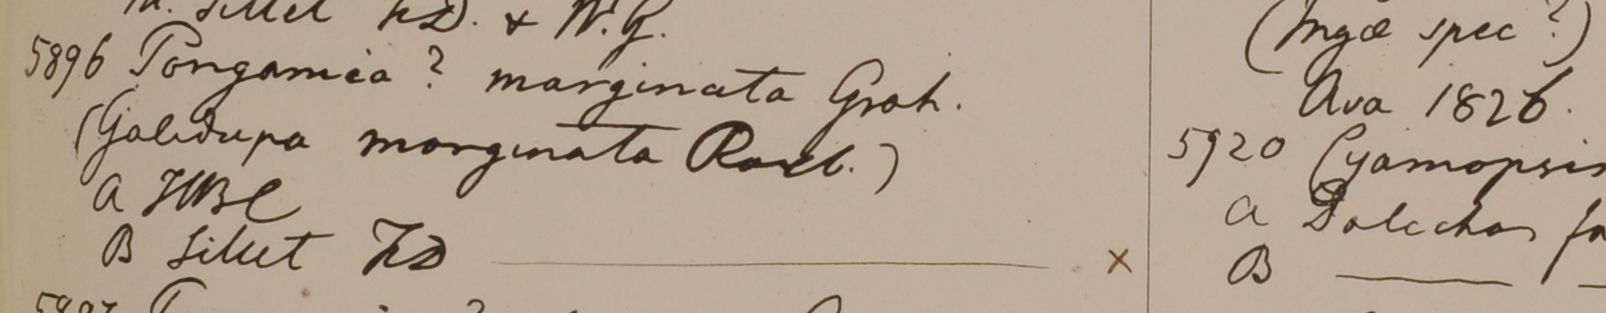 Sillet FD. & W.G.
5896 Pongamia? marginata Grah.
(Galedupa marginata Roxb.)
A HBC
B Sillet FD x
(Ingæ spec?)
Ava 1826.
5920 Cyamopsis
A Dolichos fa
B